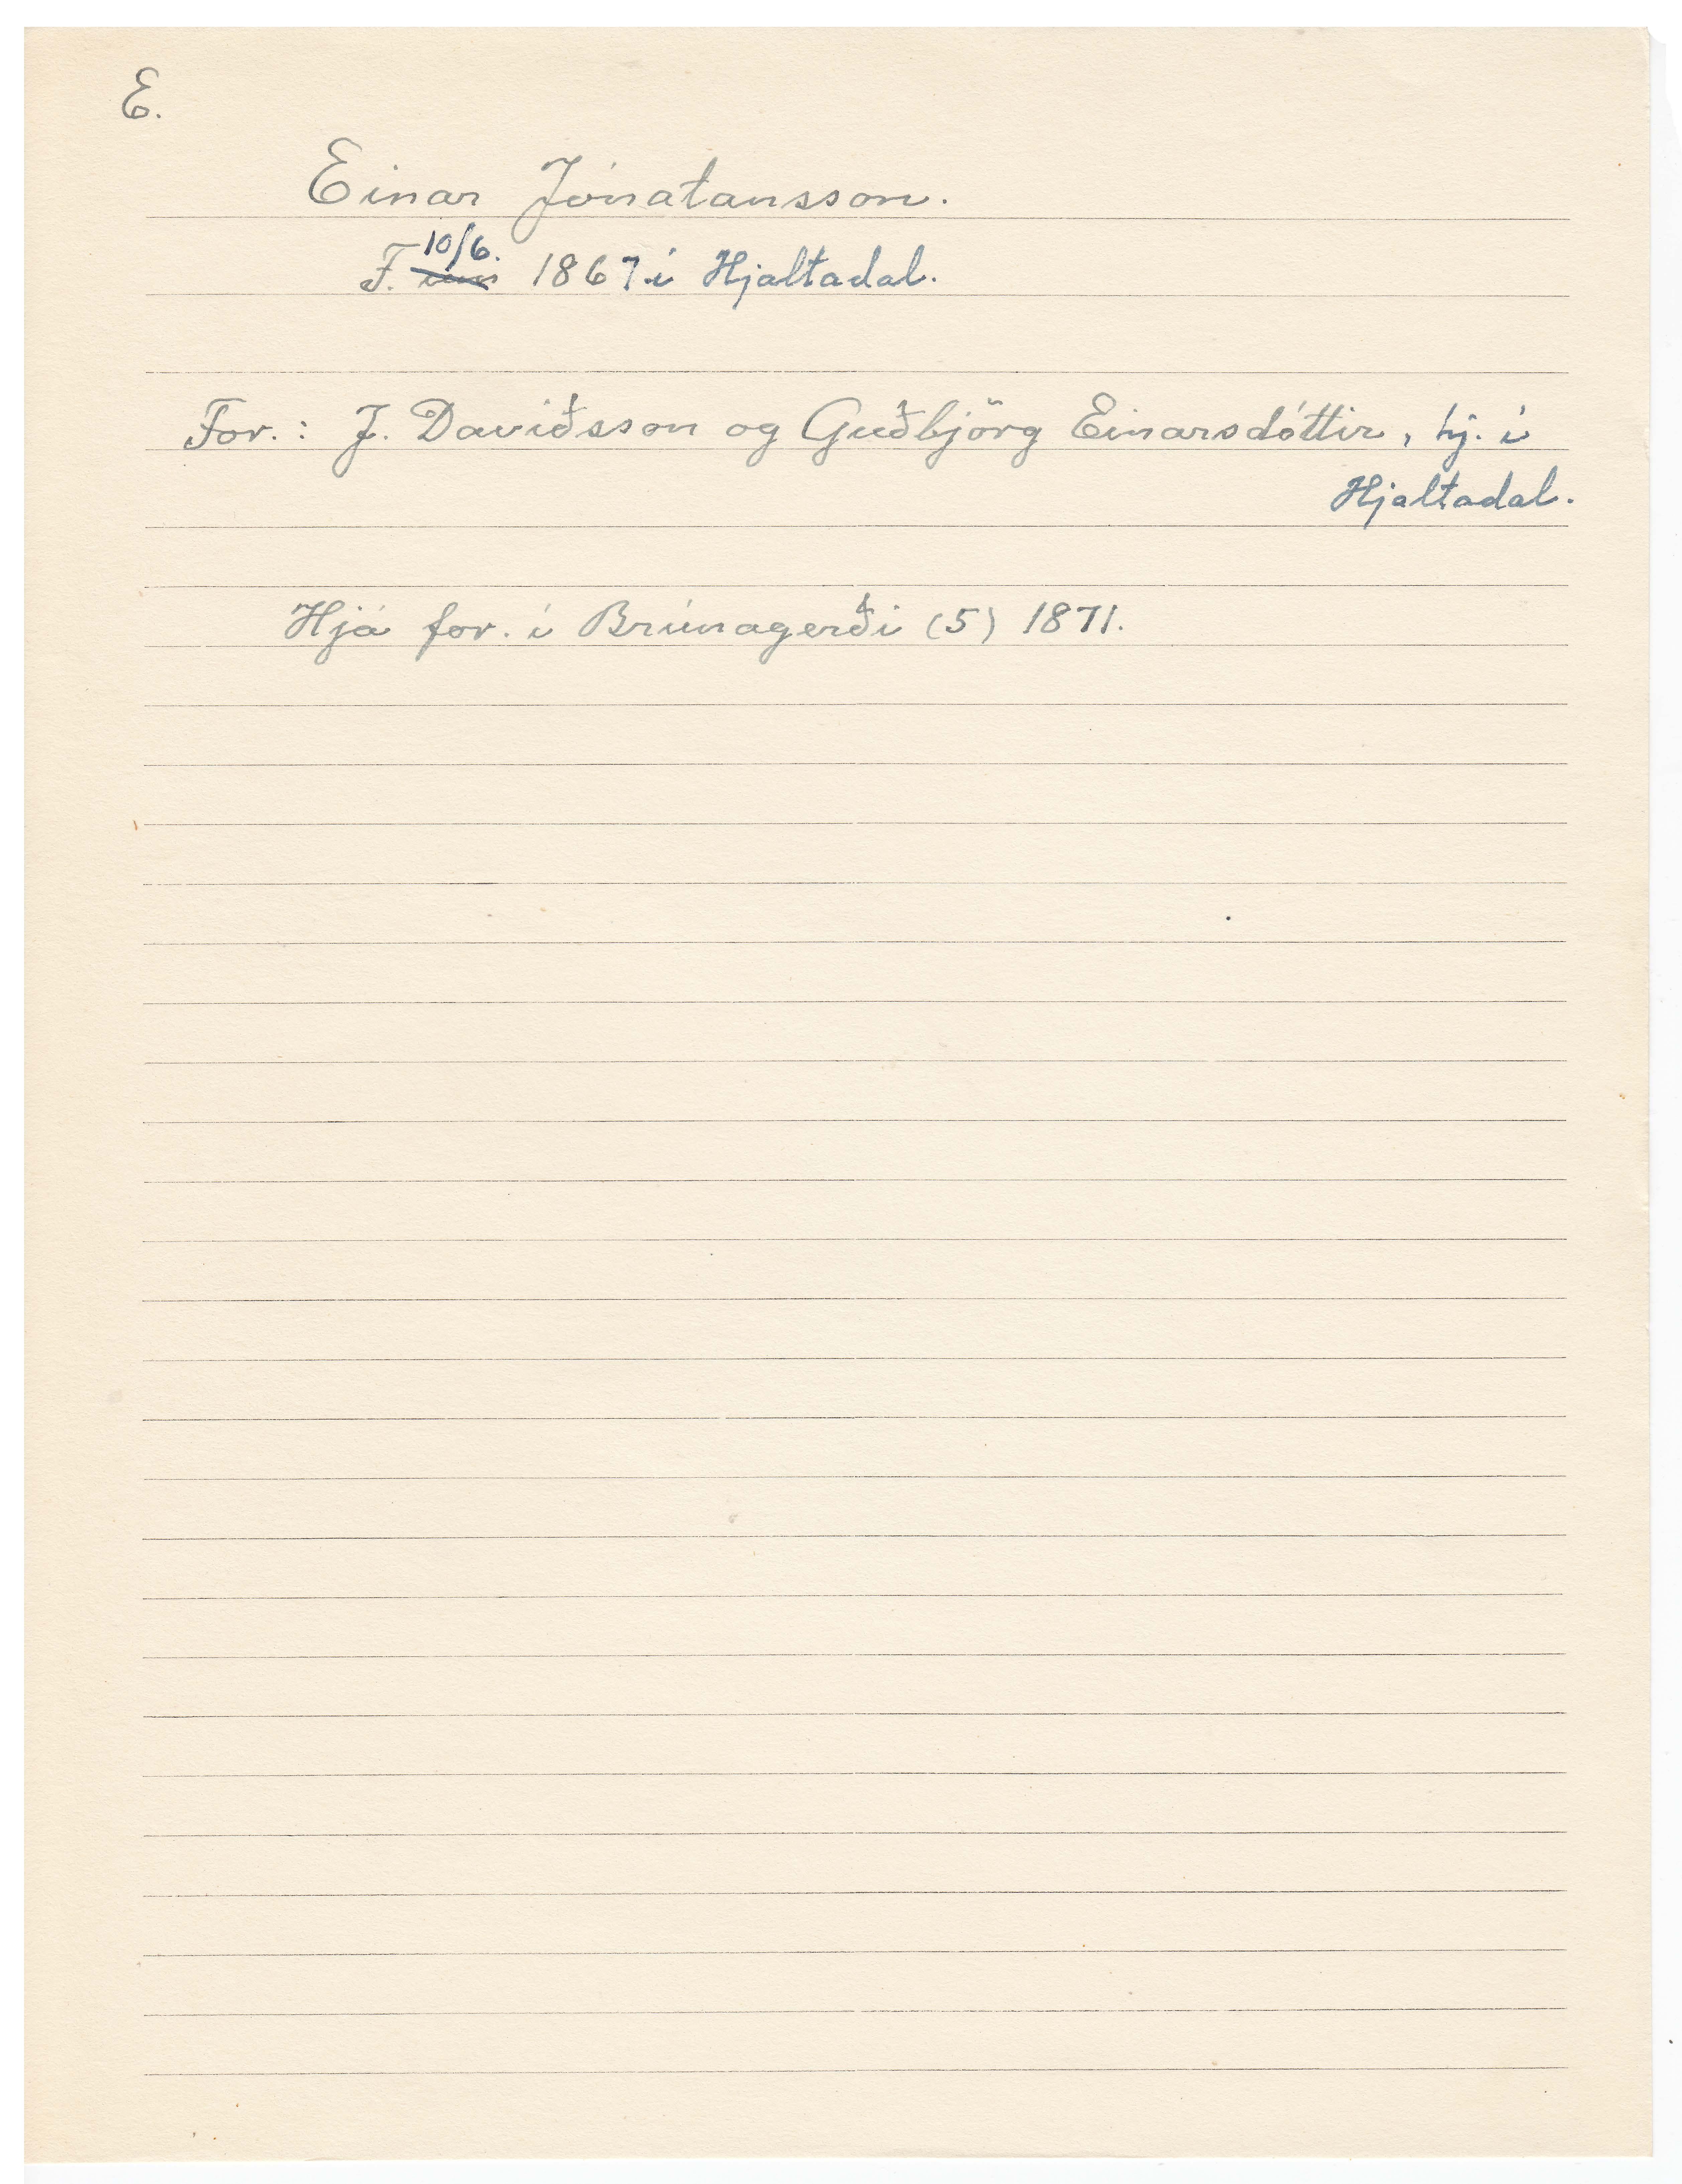 E.
Einar Jónatansson.
F. 10/6. 1867 í Hjaltadal.
For.: J. Davíðsson og Guðbjörg Einarsdóttir, hj. í
Hjaltadal.
Hjá for. í Brúnagerði (5) 1871.